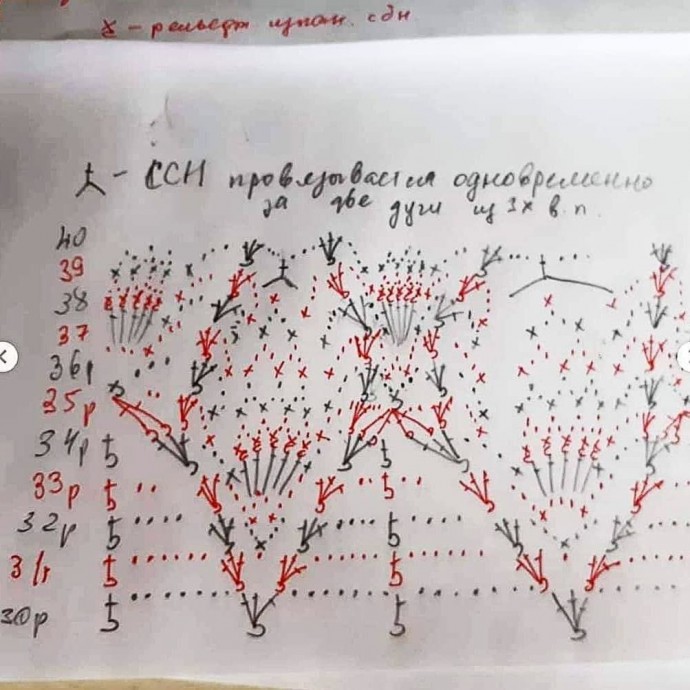 ꭖ - рельефн изнан. сбн
⅄ - ССН провязывается одновременно
за две дуги из 3х в.п.
40
39
38
37
36р
35р
34р
33р
32р
31р
30р